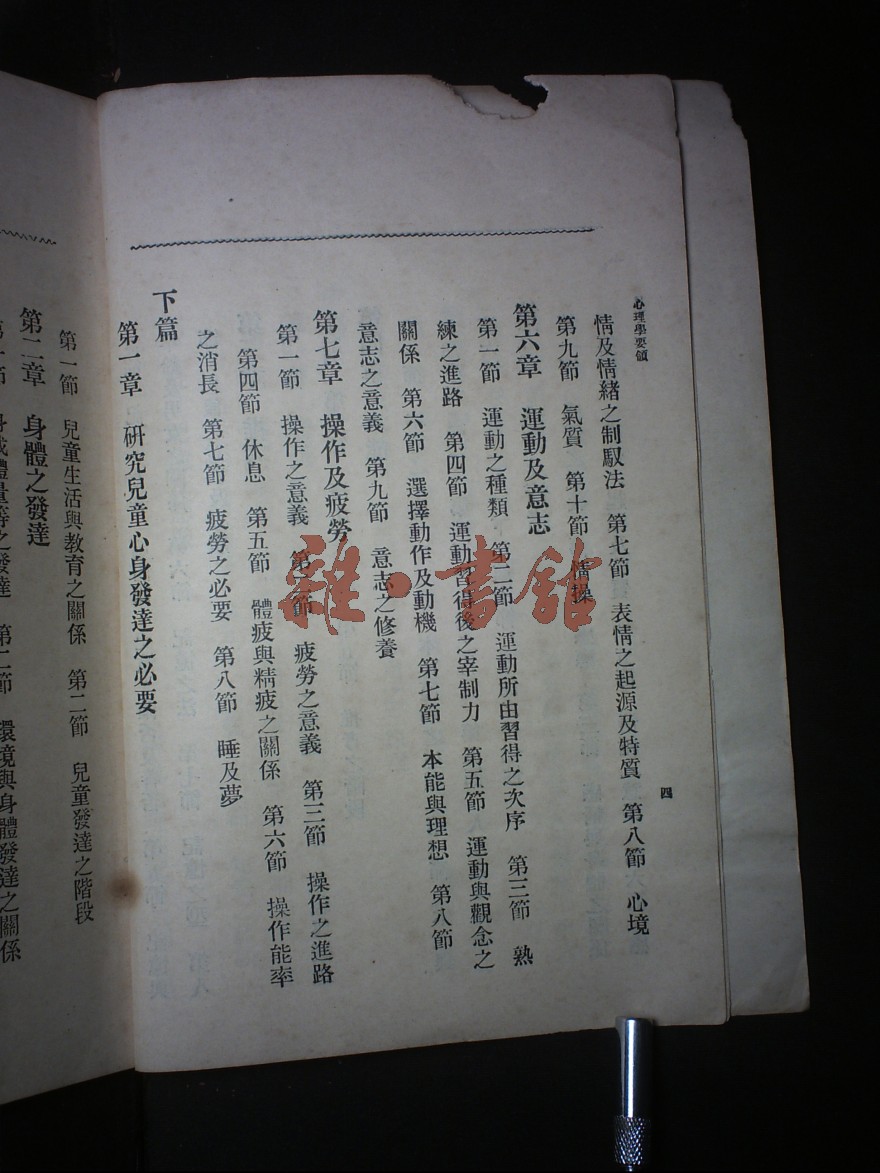 心理學要領
四
情及情緒之制馭法 第七節 表情之起源及特質 第八節 心境
第九節 氣質 第十節 情操
第六章 運動及意志
第一節 運動之種類 第二節 運動所由習得之次序 第三節 熟
練之進路 第四節 運動習得後之宰制力 第五節 運動與觀念之
關係 第六節 選擇動作及動機 第七節 本能與理想 第八節
意志之意義 第九節 意志之修養
第七章 操作及疲勞
第一節 操作之意義 第二節 疲勞之意義 第三節 操作之進路
第四節 休息 第五節 體疲與精疲之關係 第六節 操作能率
之消長 第七節 疲勞之必要 第八節 睡及夢
下篇
第一章 研究兒童心身發達之必要
第一節 兒童生活與教育之關係 第二節 兒童發達之階段
第二章 身體之發達
第一節 身長體量等之發達 第二節 環境與身體發達之關係
雜·書館